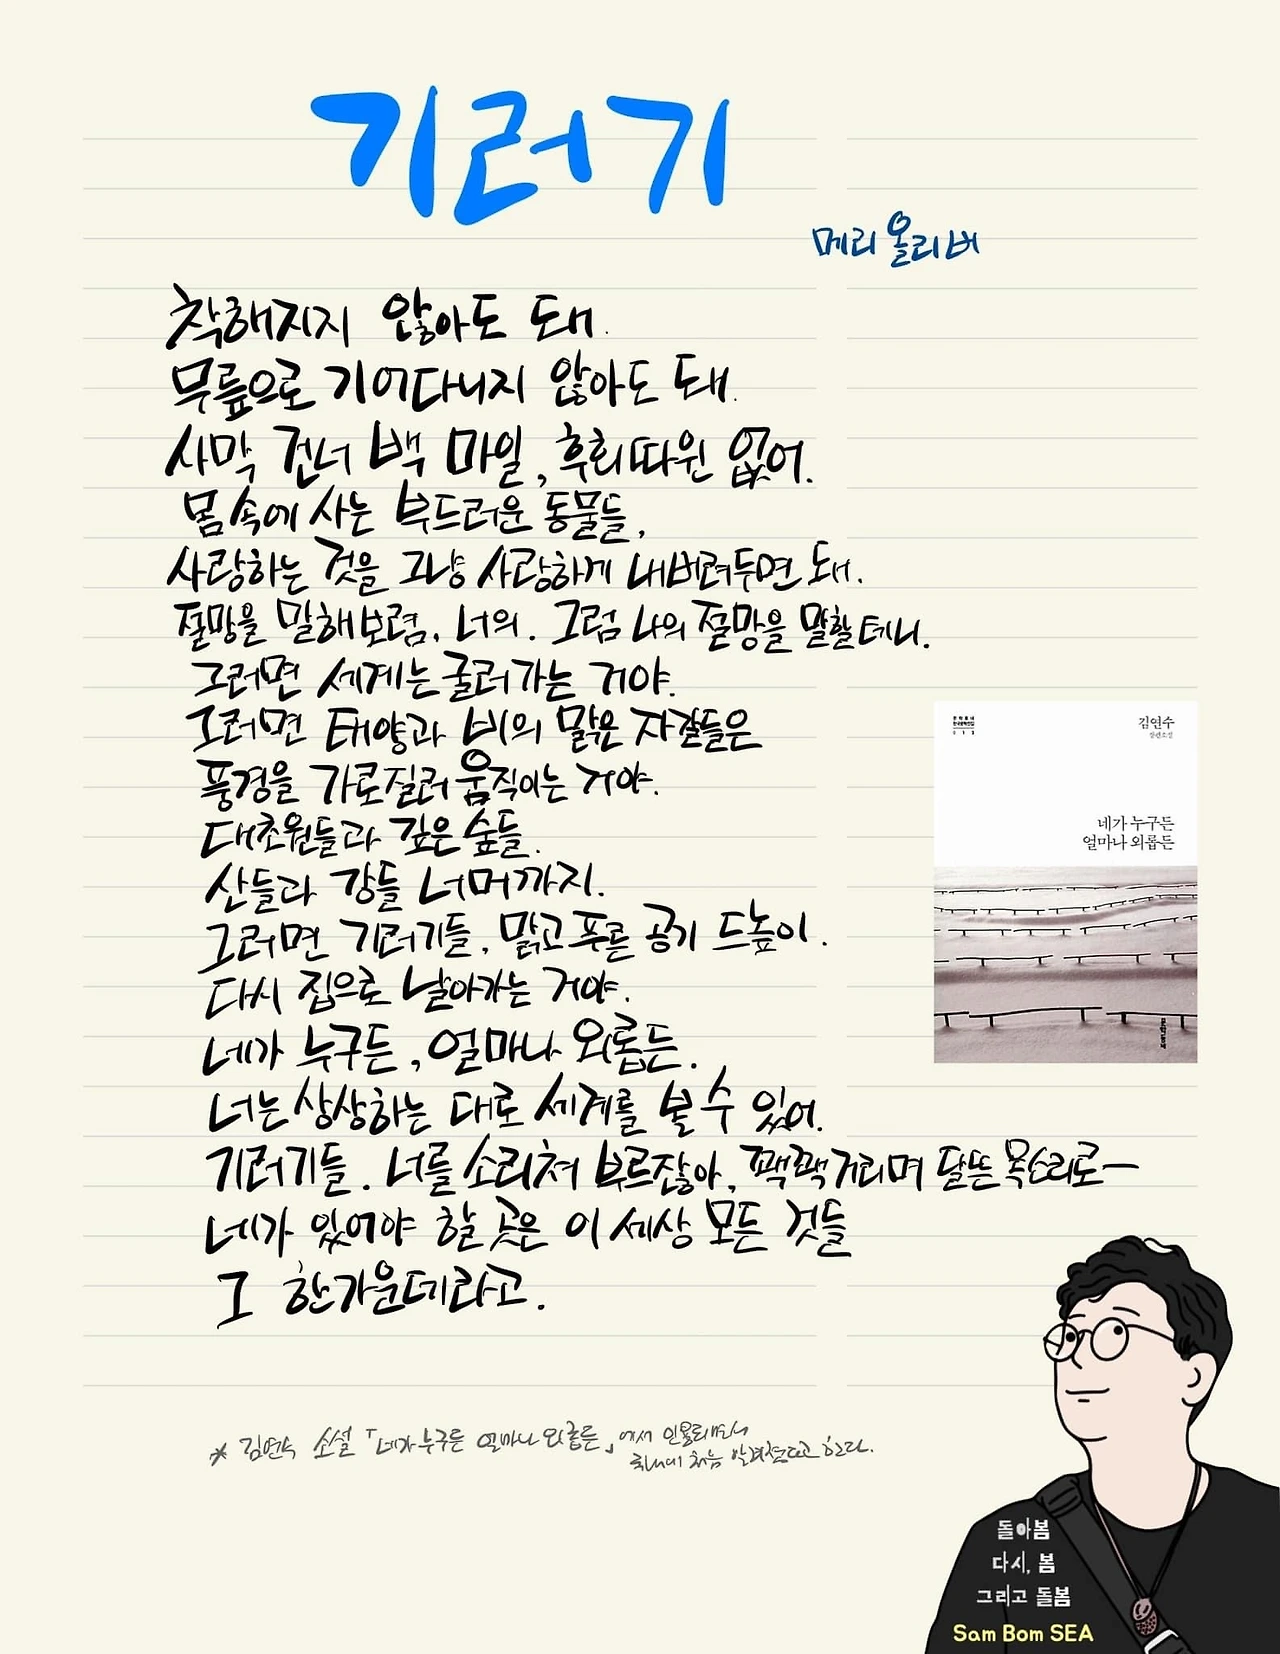 기러기
메리 올리버
착해지지 않아도 돼.
무릎으로 기어다니지 않아도 돼.
사막 건너 백 마일, 후회따윈 없어.
몸 속에 사는 부드러운 동물들,
사랑하는 것을 그냥 사랑하게 내버려두면 돼.
절망을 말해보렴, 너의. 그럼 나의 절망을 말할테니.
그러면 세계는 굴러가는 거야.
그러면 태양과 비의 맑은 자갈들은
풍경을 가로질러 움직이는 거야.
대초원들과 깊은 숲들.
산들과 강들 너머까지.
그러면 기러기들, 맑고 푸른 공기 드높이.
다시 집으로 날아가는 거야.
네가 누구든, 얼마나 외롭든.
너는 상상하는 대로 세계를 볼 수 있어.
기러기들. 너를 소리쳐 부르잖아, 꽥꽥거리며 달뜬 목소리로—
네가 있어야 할 곳은 이 세상 모든 것들
그 한가운데라고.
김연수
장편소설
네가 누구든
얼마나 외롭든
문학동네
* 김연수 소설 「네가 누구든 얼마나 외롭든」에서 인용되면서
국내에 처음 알려졌다고 한다.
돌아봄
다시, 봄
그리고 돌봄
Sam Bom SEA